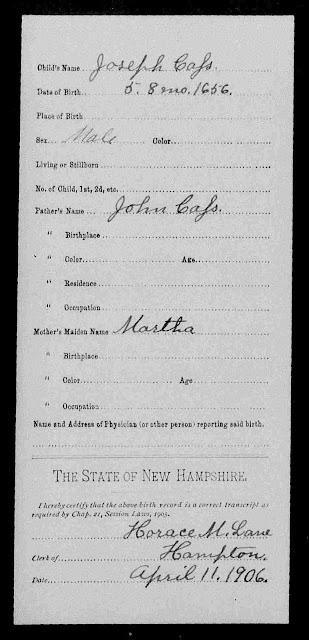 Child's Name Joseph Cass.
Date of Birth 5. 8 mo. 1656.
Place of Birth
Sex Male Color
Living or Stillborn
No. of Child, 1st, 2d, etc.
Father's Name John Cass.
" Birthplace
" Color Age
" Residence
" Occupation
Mother's Maiden Name Martha
" Birthplace
" Color Age
" Occupation
Name and Address of Physician (or other person) reporting said birth.
THE STATE OF NEW HAMPSHIRE.
I hereby certify that the above birth record is a correct transcript as
required by Chap. 21, Session Laws, 1905.
Horace M. Lane
Clerk of Hampton.
Date April 11. 1906.